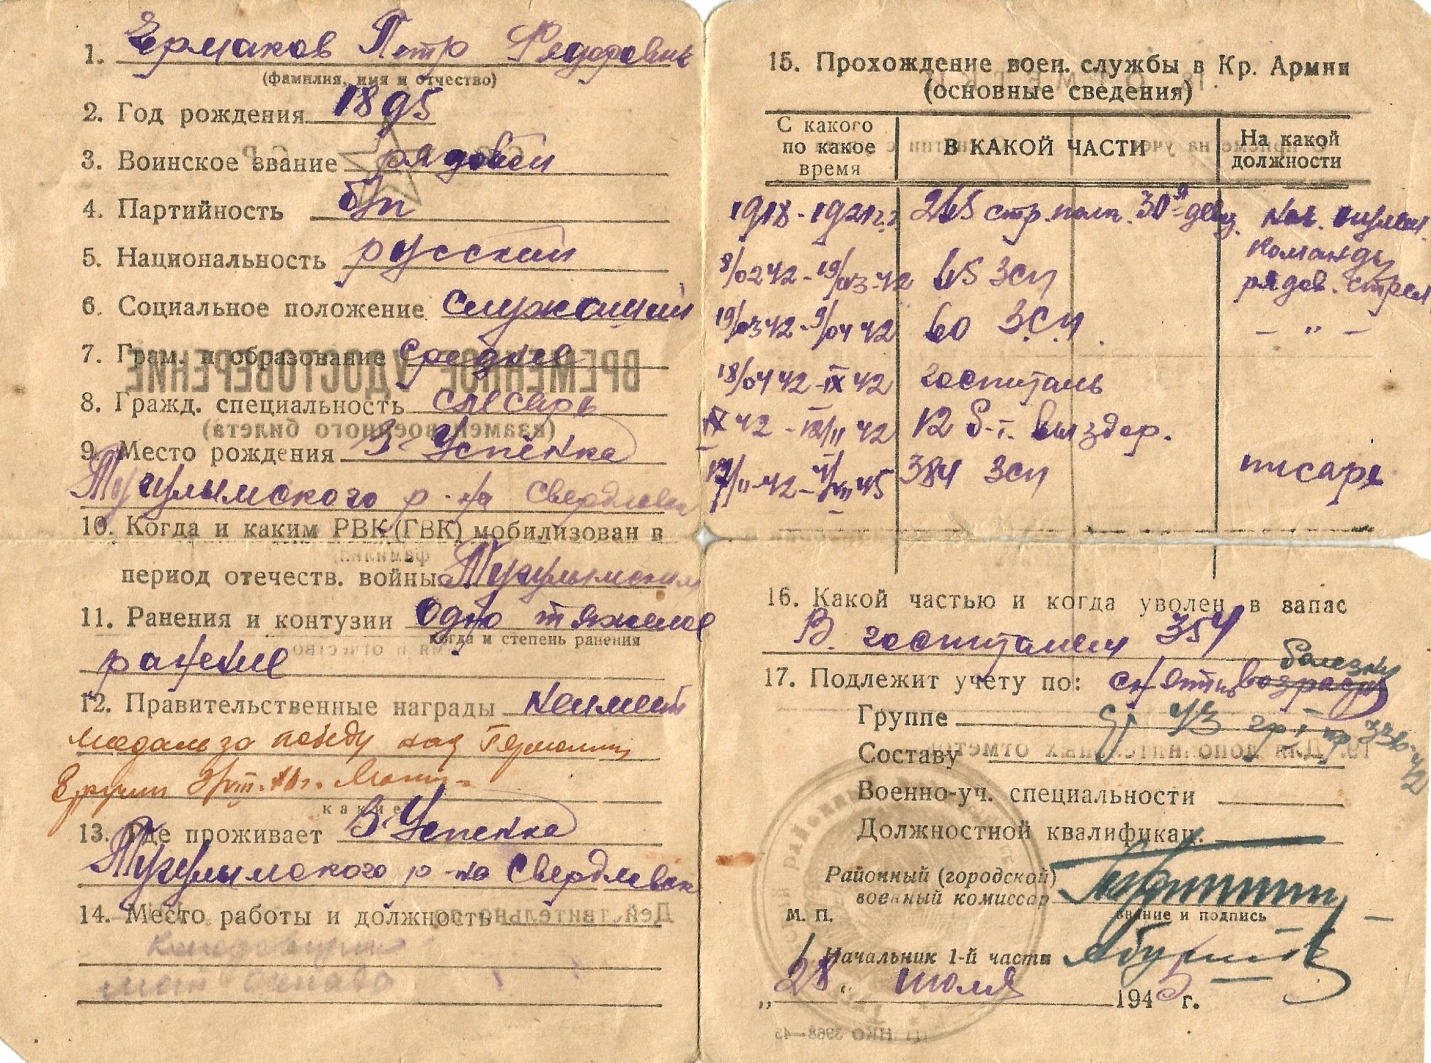 1. Ермаков Петр Федорович
(фамилия, имя и отчество)
2. Год рождения 1895
3. Воинское звание рядовой
4. Партийность б/п
5. Национальность русский
6. Социальное положение служащий
7. Грам. и образование среднее
8. Гражд. специальность слесарь
9. Место рождения З-Успенка
Тугулымского р-на Свердловск
10. Когда и каким РВК (ГВК) мобилизован в
период отечеств. войны Тугулымским
11. Ранения и контузии одно тяжелое
когда и степень ранения
ранение
12. Правительственные награды не имеет
медаль за победу над Германией
какие
13. Где проживает З-Успенка
Тугулымского р-на Свердловск
14. Место работы и должность
15. Прохождение воен. службы в Кр. Армии
(основные сведения)
С какого по какое время
В КАКОЙ ЧАСТИ
На какой должности
1918-1921 г.г. 265 стр. полк. 30й див. Нач. пулем.
команды
8/02 42-19/03-42 45 ЗСП рядов. стрел
19/03 42-9/04 42 60 ЗСП. – " –
18/04 42-IX 42 госпиталь
IX 42 - 12/11 42 12 б-т. выздор.
12/11-42- 45 384 ЗСП писарь
16. Какой частью и когда уволен в запас
В. госпиталем 354
17. Подлежит учету по: снятия возрасту болезни
Группе
Составу
Военно-уч. специальности
Должностной квалификац.
Районный (городской)
военный комиссар
звание и подпись
М. П.
Начальник 1-й части
„28" июля 1945 г.
ВРЕМЕННОЕ УДОСТОВЕРЕНИЕ
(взамен военного билета)